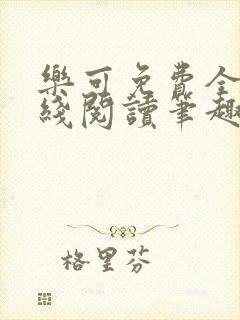 樂可免費全
綫閱讀筆趣
格里芬